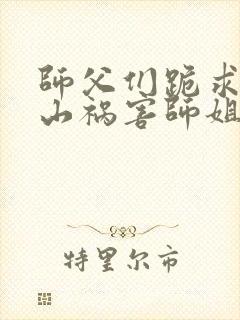 師父们跪求
山祸害師姐
特里尔市